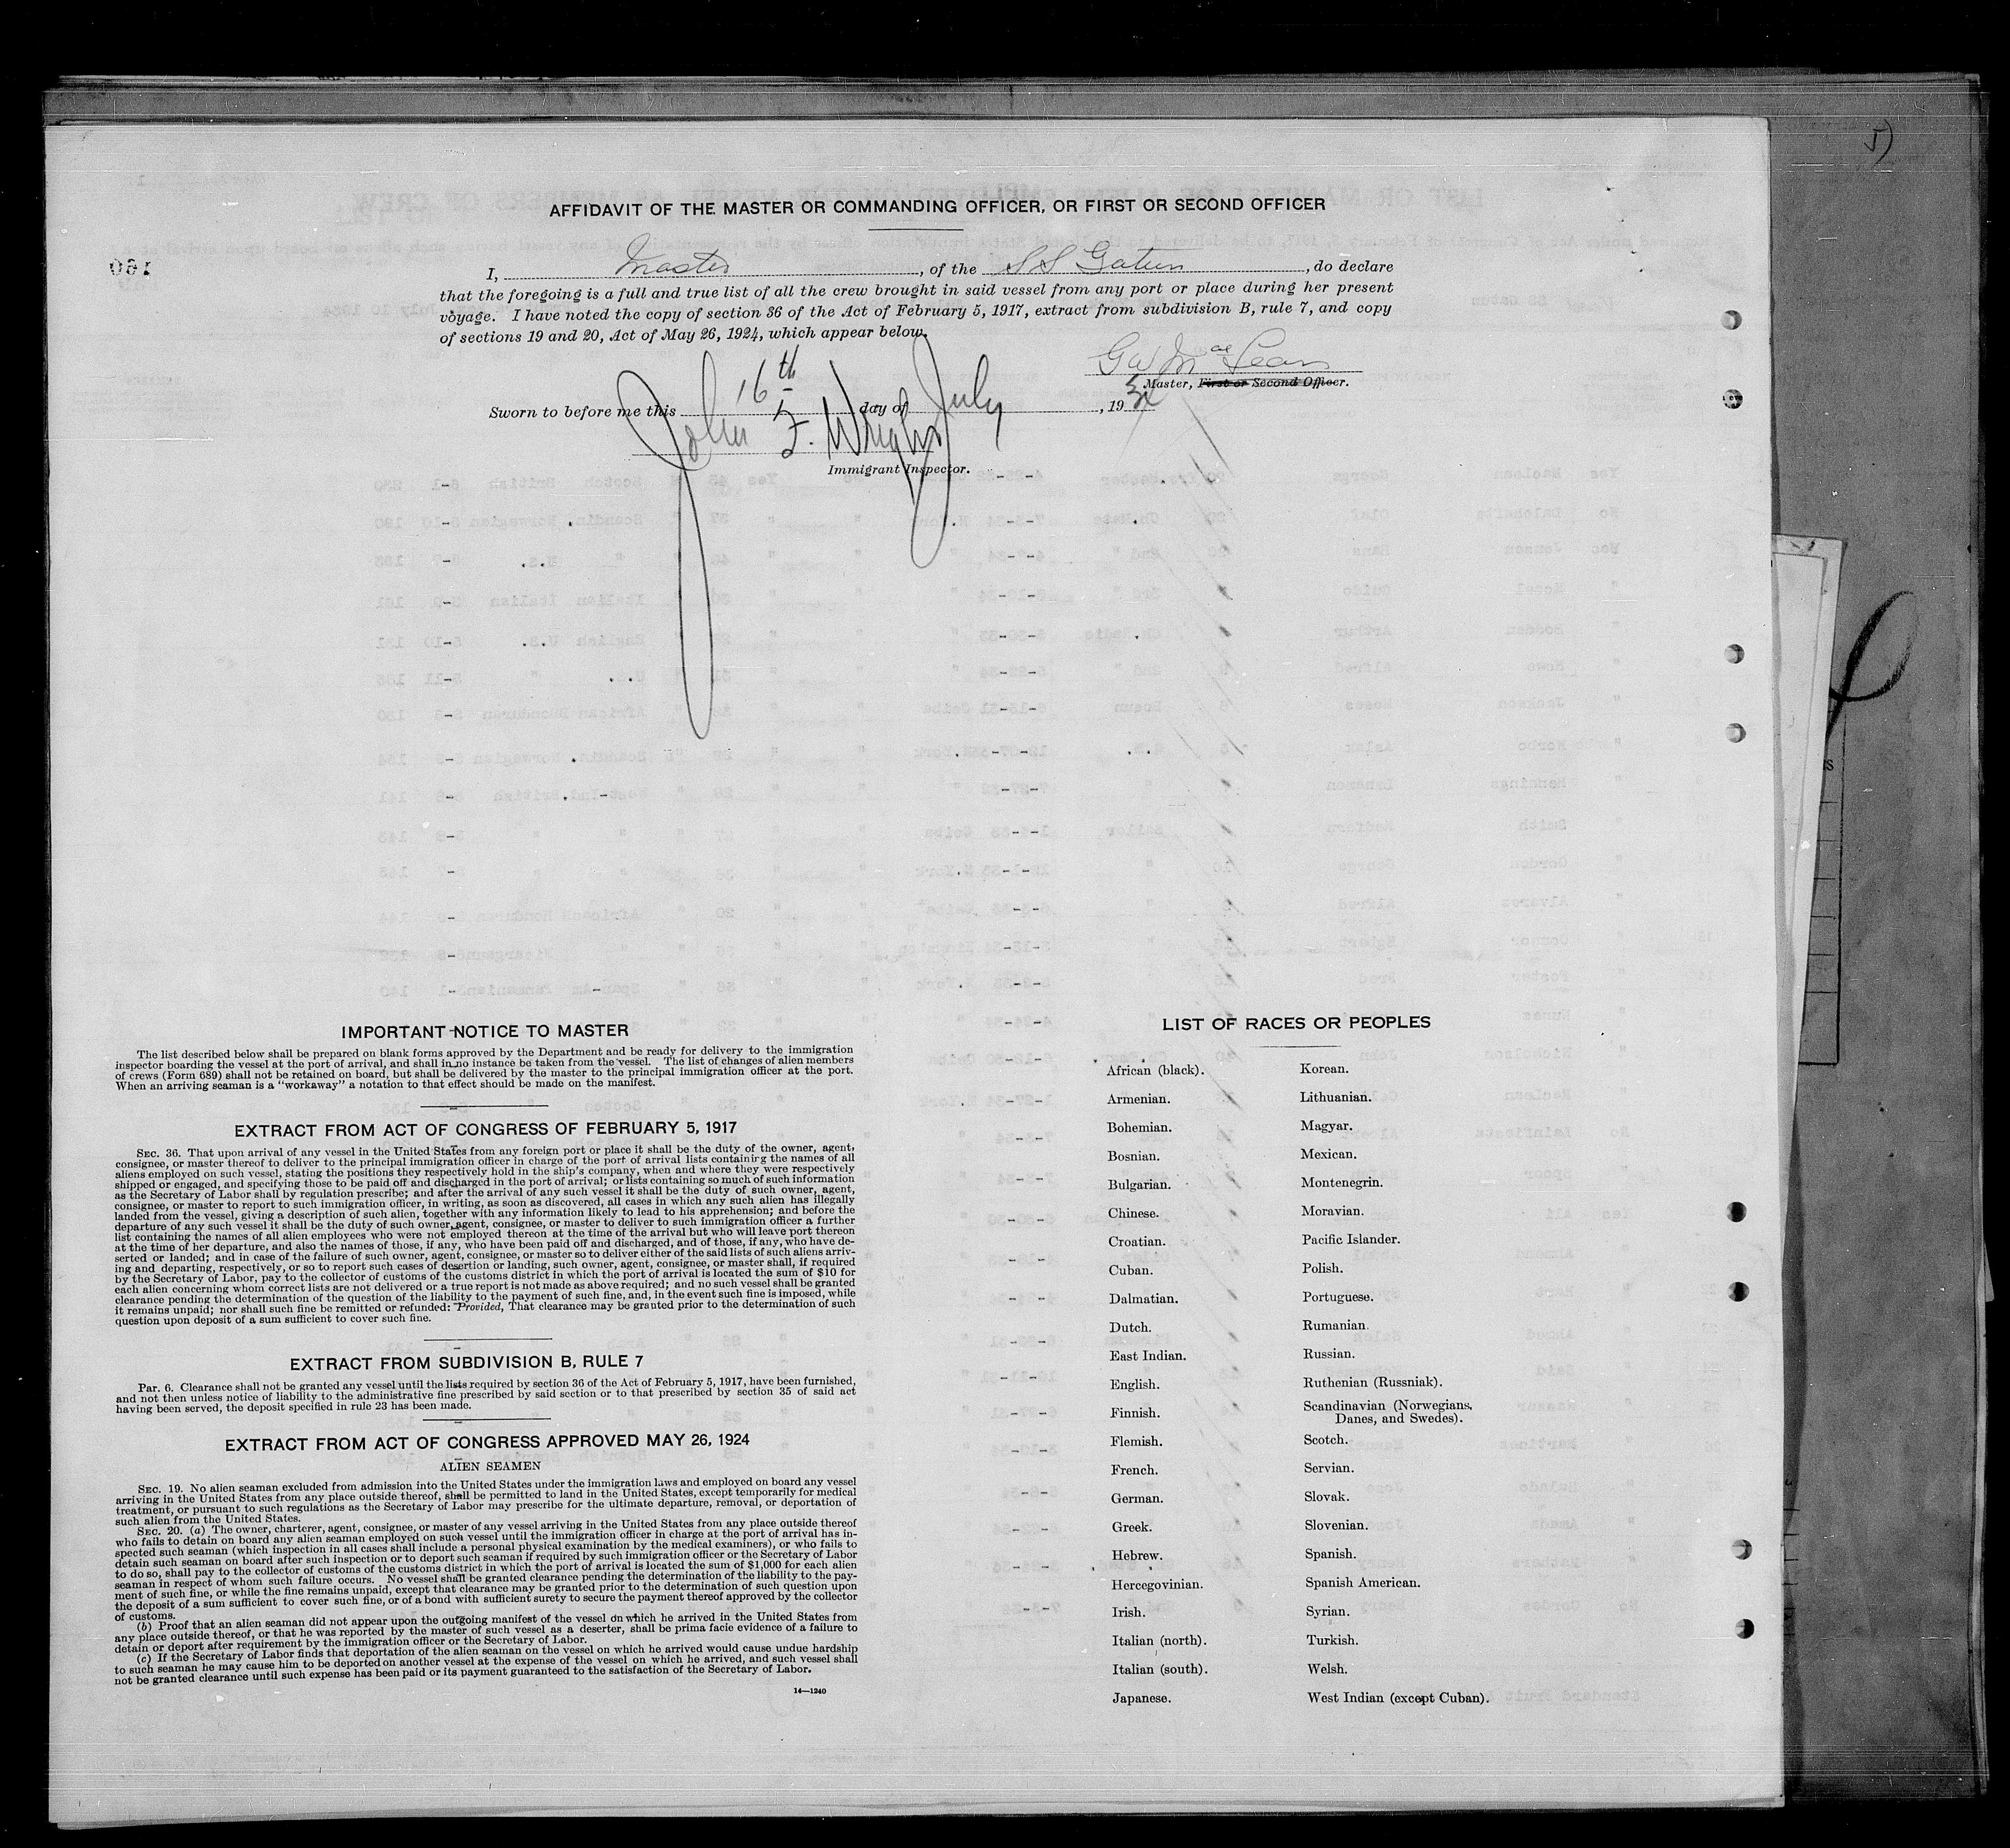 AFFIDAVIT OF THE MASTER OR COMMANDING OFFICER, OR FIRST OR SECOND OFFICER
I, Master, of the SS Gatun, do declare
that the foregoing is a full and true list of all the crew brought in said vessel from any port or place during her present
voyage. I have noted the copy of section 36 of the Act of February 5, 1917, extract from subdivision B, rule 7, and copy
of sections 19 and 20, Act of May 26, 1924, which appear below.
G W MacLean
Master, First or Second Officer.
Sworn to before me this 16th day of July, 1934
John F. Wright
Immigrant Inspector.
IMPORTANT NOTICE TO MASTER
The list described below shall be prepared on blank forms approved by the Department and be ready for delivery to the immigration
inspector boarding the vessel at the port of arrival, and shall in no instance be taken from the vessel. The list of changes of alien members
of crews (Form 689) shall not be retained on board, but shall be delivered by the master to the principal immigration officer at the port.
When an arriving seaman is a "workaway" a notation to that effect should be made on the manifest.
EXTRACT FROM ACT OF CONGRESS OF FEBRUARY 5, 1917
SEC. 36. That upon arrival of any vessel in the United States from any foreign port or place it shall be the duty of the owner, agent,
consignee, or master thereof to deliver to the principal immigration officer in charge of the port of arrival lists containing the names of all
aliens employed on such vessel, stating the positions they respectively hold in the ship's company, when and where they were respectively
shipped or engaged, and specifying those to be paid off and discharged in the port of arrival; or lists containing so much of such information
as the Secretary of Labor shall by regulation prescribe; and after the arrival of any such vessel it shall be the duty of such owner, agent,
consignee, or master to report to such immigration officer, in writing, as soon as discovered, all cases in which any such alien has illegally
landed from the vessel, giving a description of such alien, together with any information likely to lead to his apprehension; and before the
departure of any such vessel it shall be the duty of such owner, agent, consignee, or master to deliver to such immigration officer a further
list containing the names of all alien employees who were not employed thereon at the time of the arrival but who will leave port thereon
at the time of her departure, and also the names of those, if any, who have been paid off and discharged, and of those, if any, who have de-
serted or landed; and in case of the failure of such owner, agent, consignee, or master so to deliver either of the said lists of such aliens arriv-
ing and departing, respectively, or so to report such cases of desertion or landing, such owner, agent, consignee, or master shall, if required
by the Secretary of Labor, pay to the collector of customs of the customs district in which the port of arrival is located the sum of $10 for
each alien concerning whom correct lists are not delivered or a true report is not made as above required; and no such vessel shall be granted
clearance pending the determination of the question of the liability to the payment of such fine, and, in the event such fine is imposed, while
it remains unpaid; nor shall such fine be remitted or refunded: Provided, That clearance may be granted prior to the determination of such
question upon deposit of a sum sufficient to cover such fine.
EXTRACT FROM SUBDIVISION B, RULE 7
Par. 6. Clearance shall not be granted any vessel until the lists required by section 36 of the Act of February 5, 1917, have been furnished,
and not then unless notice of liability to the administrative fine prescribed by said section or to that prescribed by section 35 of said act
having been served, the deposit specified in rule 23 has been made.
EXTRACT FROM ACT OF CONGRESS APPROVED MAY 26, 1924
ALIEN SEAMEN
SEC. 19. No alien seaman excluded from admission into the United States under the immigration laws and employed on board any vessel
arriving in the United States from any place outside thereof, shall be permitted to land in the United States, except temporarily for medical
treatment, or pursuant to such regulations as the Secretary of Labor may prescribe for the ultimate departure, removal, or deportation of
such alien from the United States.
SEC. 20. (a) The owner, charterer, agent, consignee, or master of any vessel arriving in the United States from any place outside thereof
who fails to detain on board any alien seaman employed on such vessel until the immigration officer in charge at the port of arrival has in-
spected such seaman (which inspection in all cases shall include a personal physical examination by the medical examiners), or who fails to
detain such seaman on board after such inspection or to deport such seaman if required by such immigration officer or the Secretary of Labor
to do so, shall pay to the collector of customs of the customs district in which the port of arrival is located the sum of $1,000 for each alien
seaman in respect of whom such failure occurs. No vessel shall be granted clearance pending the determination of the liability to the pay-
ment of such fine, or while the fine remains unpaid, except that clearance may be granted prior to the determination of such question upon
the deposit of a sum sufficient to cover such fine, or of a bond with sufficient surety to secure the payment thereof approved by the collector
of customs.
(b) Proof that an alien seaman did not appear upon the outgoing manifest of the vessel on which he arrived in the United States from
any place outside thereof, or that he was reported by the master of such vessel as a deserter, shall be prima facie evidence of a failure to
detain or deport after requirement by the immigration officer or the Secretary of Labor.
(c) If the Secretary of Labor finds that deportation of the alien seaman on the vessel on which he arrived would cause undue hardship
to such seaman he may cause him to be deported on another vessel at the expense of the vessel on which he arrived, and such vessel shall
not be granted clearance until such expense has been paid or its payment guaranteed to the satisfaction of the Secretary of Labor.
14—1240
LIST OF RACES OR PEOPLES
African (black).
Armenian.
Bohemian.
Bosnian.
Bulgarian.
Chinese.
Croatian.
Cuban.
Dalmatian.
Dutch.
East Indian.
English.
Finnish.
Flemish.
French.
German.
Greek.
Hebrew.
Hercegovinian.
Irish.
Italian (north).
Italian (south).
Japanese.
Korean.
Lithuanian.
Magyar.
Mexican.
Montenegrin.
Moravian.
Pacific Islander.
Polish.
Portuguese.
Rumanian.
Russian.
Ruthenian (Russniak).
Scandinavian (Norwegians,
Danes, and Swedes).
Scotch.
Servian.
Slovak.
Slovenian.
Spanish.
Spanish American.
Syrian.
Turkish.
Welsh.
West Indian (except Cuban).